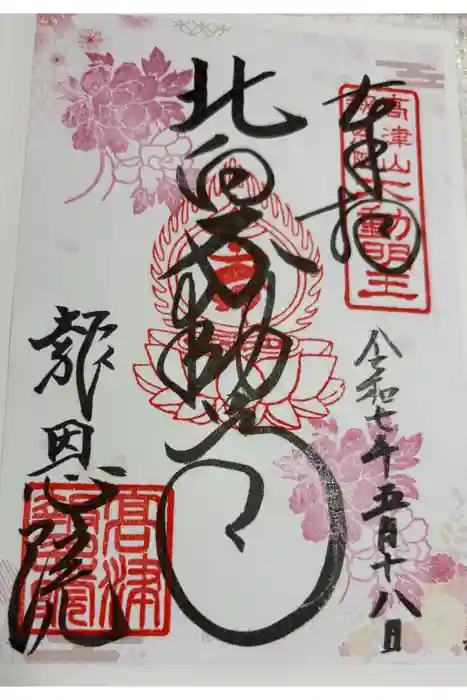 奉拝
高津山不動明王
令和七年五月十八日
北向不動
報恩院
高津
報恩院